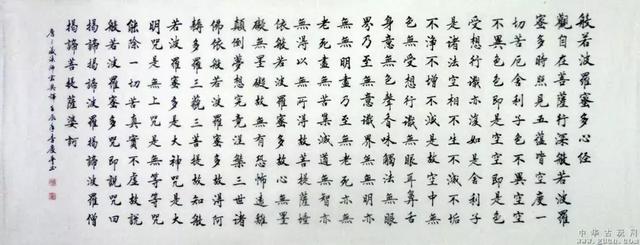 般若波羅蜜多心經
觀自在菩薩行深般若波羅
蜜多時照見五蘊皆空度一
切苦厄舍利子色不異空空
不異色色即是空空即是色
受想行識亦復如是舍利子
是諸法空相不生不滅不垢
不淨不增不減是故空中無
色無受想行識無眼耳鼻舌
身意無色聲香味觸法無眼
界乃至無意識界無無明亦
無無明盡乃至無老死亦無
老死盡無苦集滅道無智亦
無得以無所得故菩提薩埵
依般若波羅蜜多故心無罣
礙無罣礙故無有恐怖遠離
顛倒夢想究竟涅槃三世諸
佛依般若波羅蜜多故得阿
耨多羅三藐三菩提故知般
若波羅蜜多是大神咒是大
明咒是無上咒是無等等咒
能除一切苦真實不虛故說
般若波羅蜜多咒即說咒曰
揭諦揭諦波羅揭諦波羅僧
揭諦菩提薩婆訶
唐三藏法師玄奘譯壬辰年
中华古玩网
www.gucn.com